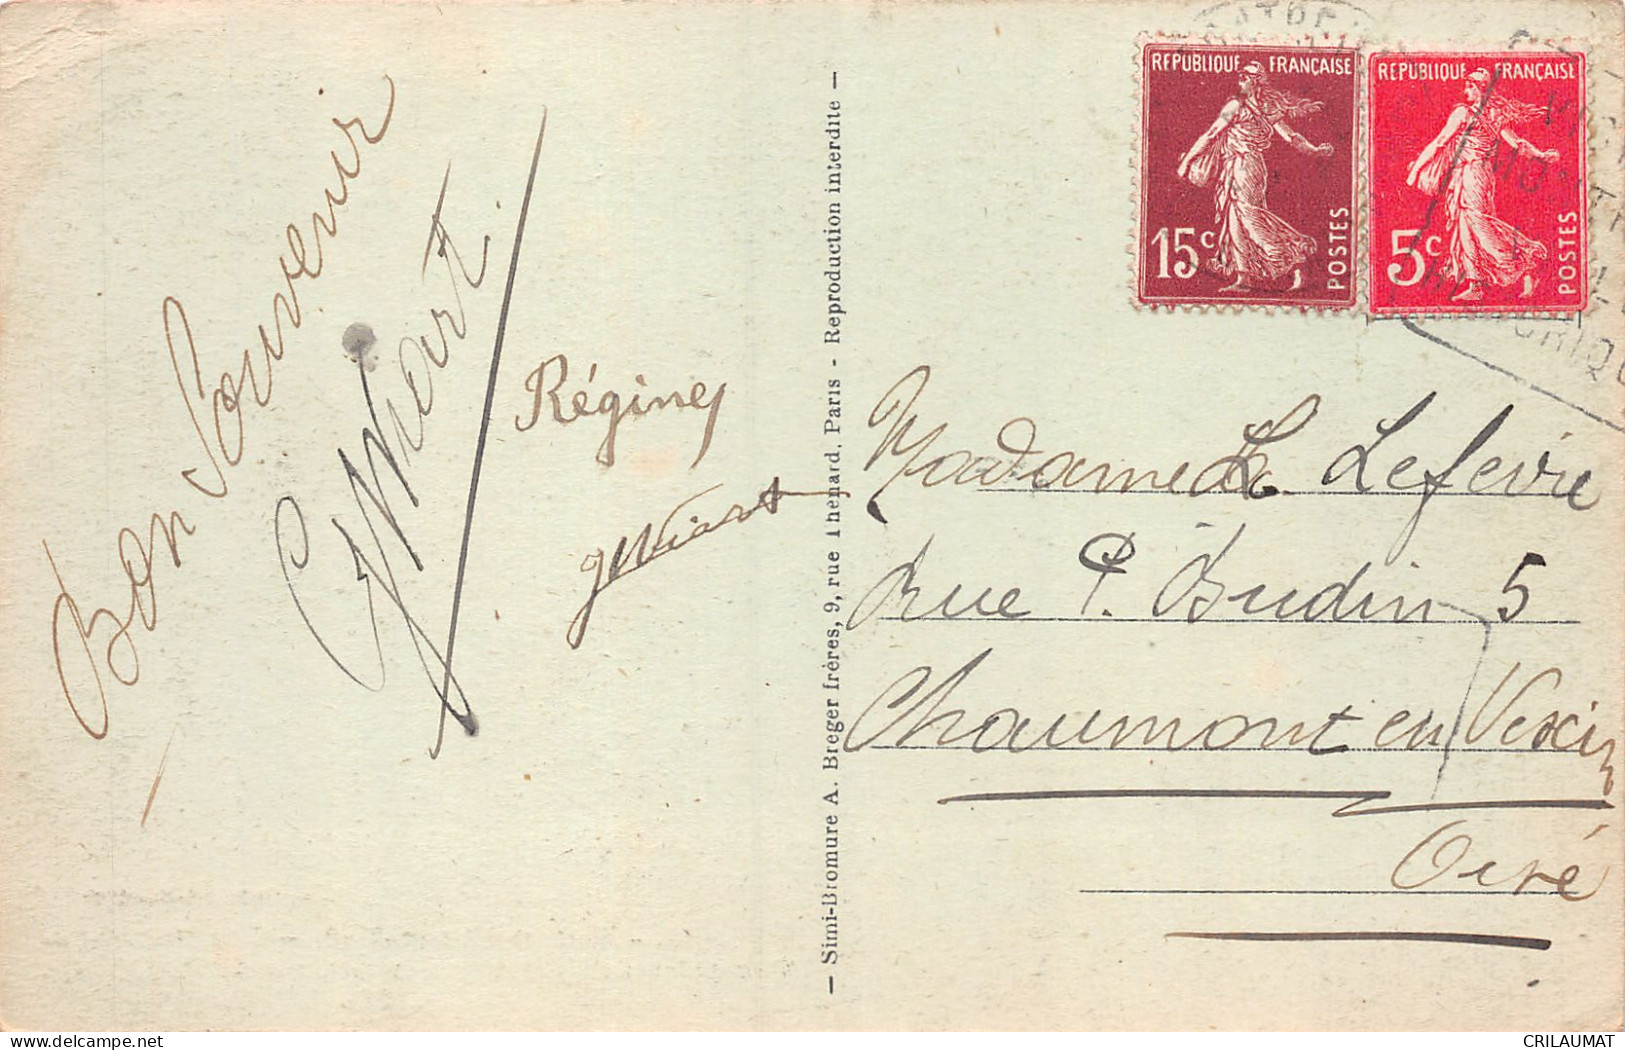 Bon Souvenir
Régine
— Simi-Bromure A. Breger frères, 9, rue Thénard, Paris - Reproduction interdite —
REPUBLIQUE FRANÇAISE
15c
POSTES
REPUBLIQUE FRANÇAISE
5c
POSTES
Madame L. Lefevre
Rue P. Budin 5
Chaumont en Vexin
Oise
delcampe.net
CRILAUMAT